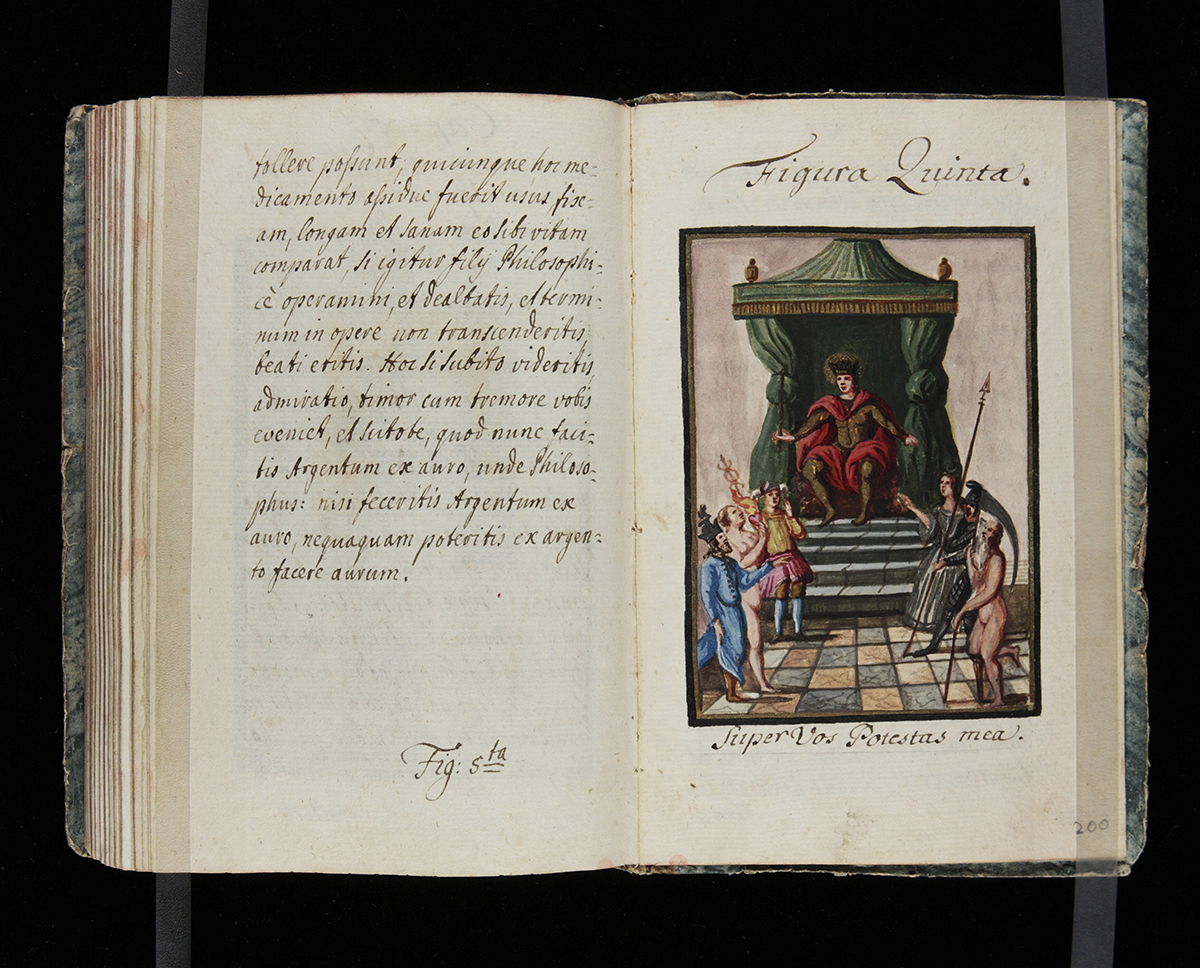 tollere possunt, quicunque hoc me-
dicamento assidue fuerit usus fix-
am, longam et sanam eo sibi vitam
comparat, si igitur filij Philosophi-
cè operamini, et dealbatis, et termi-
num in opere non transcenderitis,
beati eritis. Hoc si subito videritis,
admiratio, timor cum tremore vobis
eveniet, et scitote, quod nunc faci-
tis Argentum ex auro, unde Philoso-
phus: nisi feceritis Argentum ex
auro, nequaquam poteritis ex argen-
to facere aurum.
Fig: 5ta
Figura Quinta.
Super Vos Potestas mea.
200